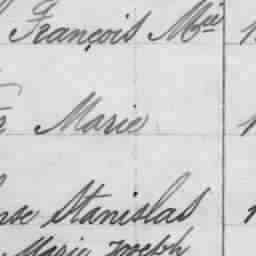 François Mie
Marie
Stanislas
Marie Joseph